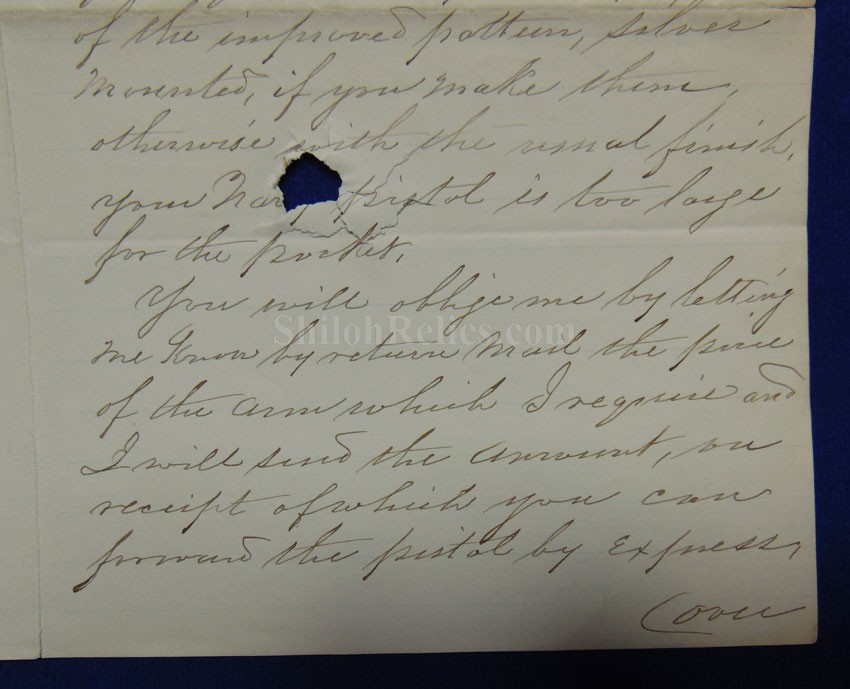 of the improved pattern, silver
mounted, if you make them,
otherwise with the usual finish.
your Navy pistol is too large
for the pocket.
You will oblige me by letting
ShilohRelics.com
me Know by return mail the price
of the arm which I require and
I will send the amount, on
receipt of which you can
forward the pistol by Express,
(over